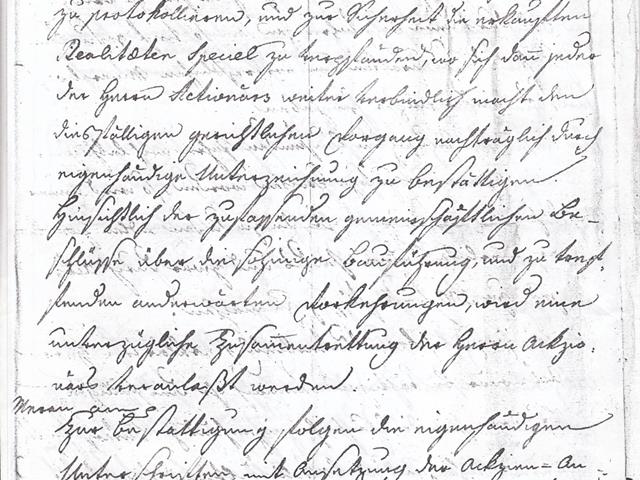 zu protokollieren, und zur Sicherheit die erkauften
Realitæten Speciel zu verpfänden, wo sich dann jeder
der Herrn Actionärs weiter verbindlich macht den
diesfälligen gerichtlichen Vorgang nachträglich durch
eigenhändige Unterzeichnung zu bestättigen.
Hinsichtlich der zufassenden gemeinschäftlichen Be-
schlüsse über die sohinige Bauführung, und zu tref-
fenden anderwärten Vorkehrungen, wird eine
unverzügliche Zusammentrettung der Herrn Ackzio-
närs veranlaßt werden.
Meran
Zur Bestättigung folgen die eigenhändigen
Unterschriften mit Ansetzung der Ackzien=An-